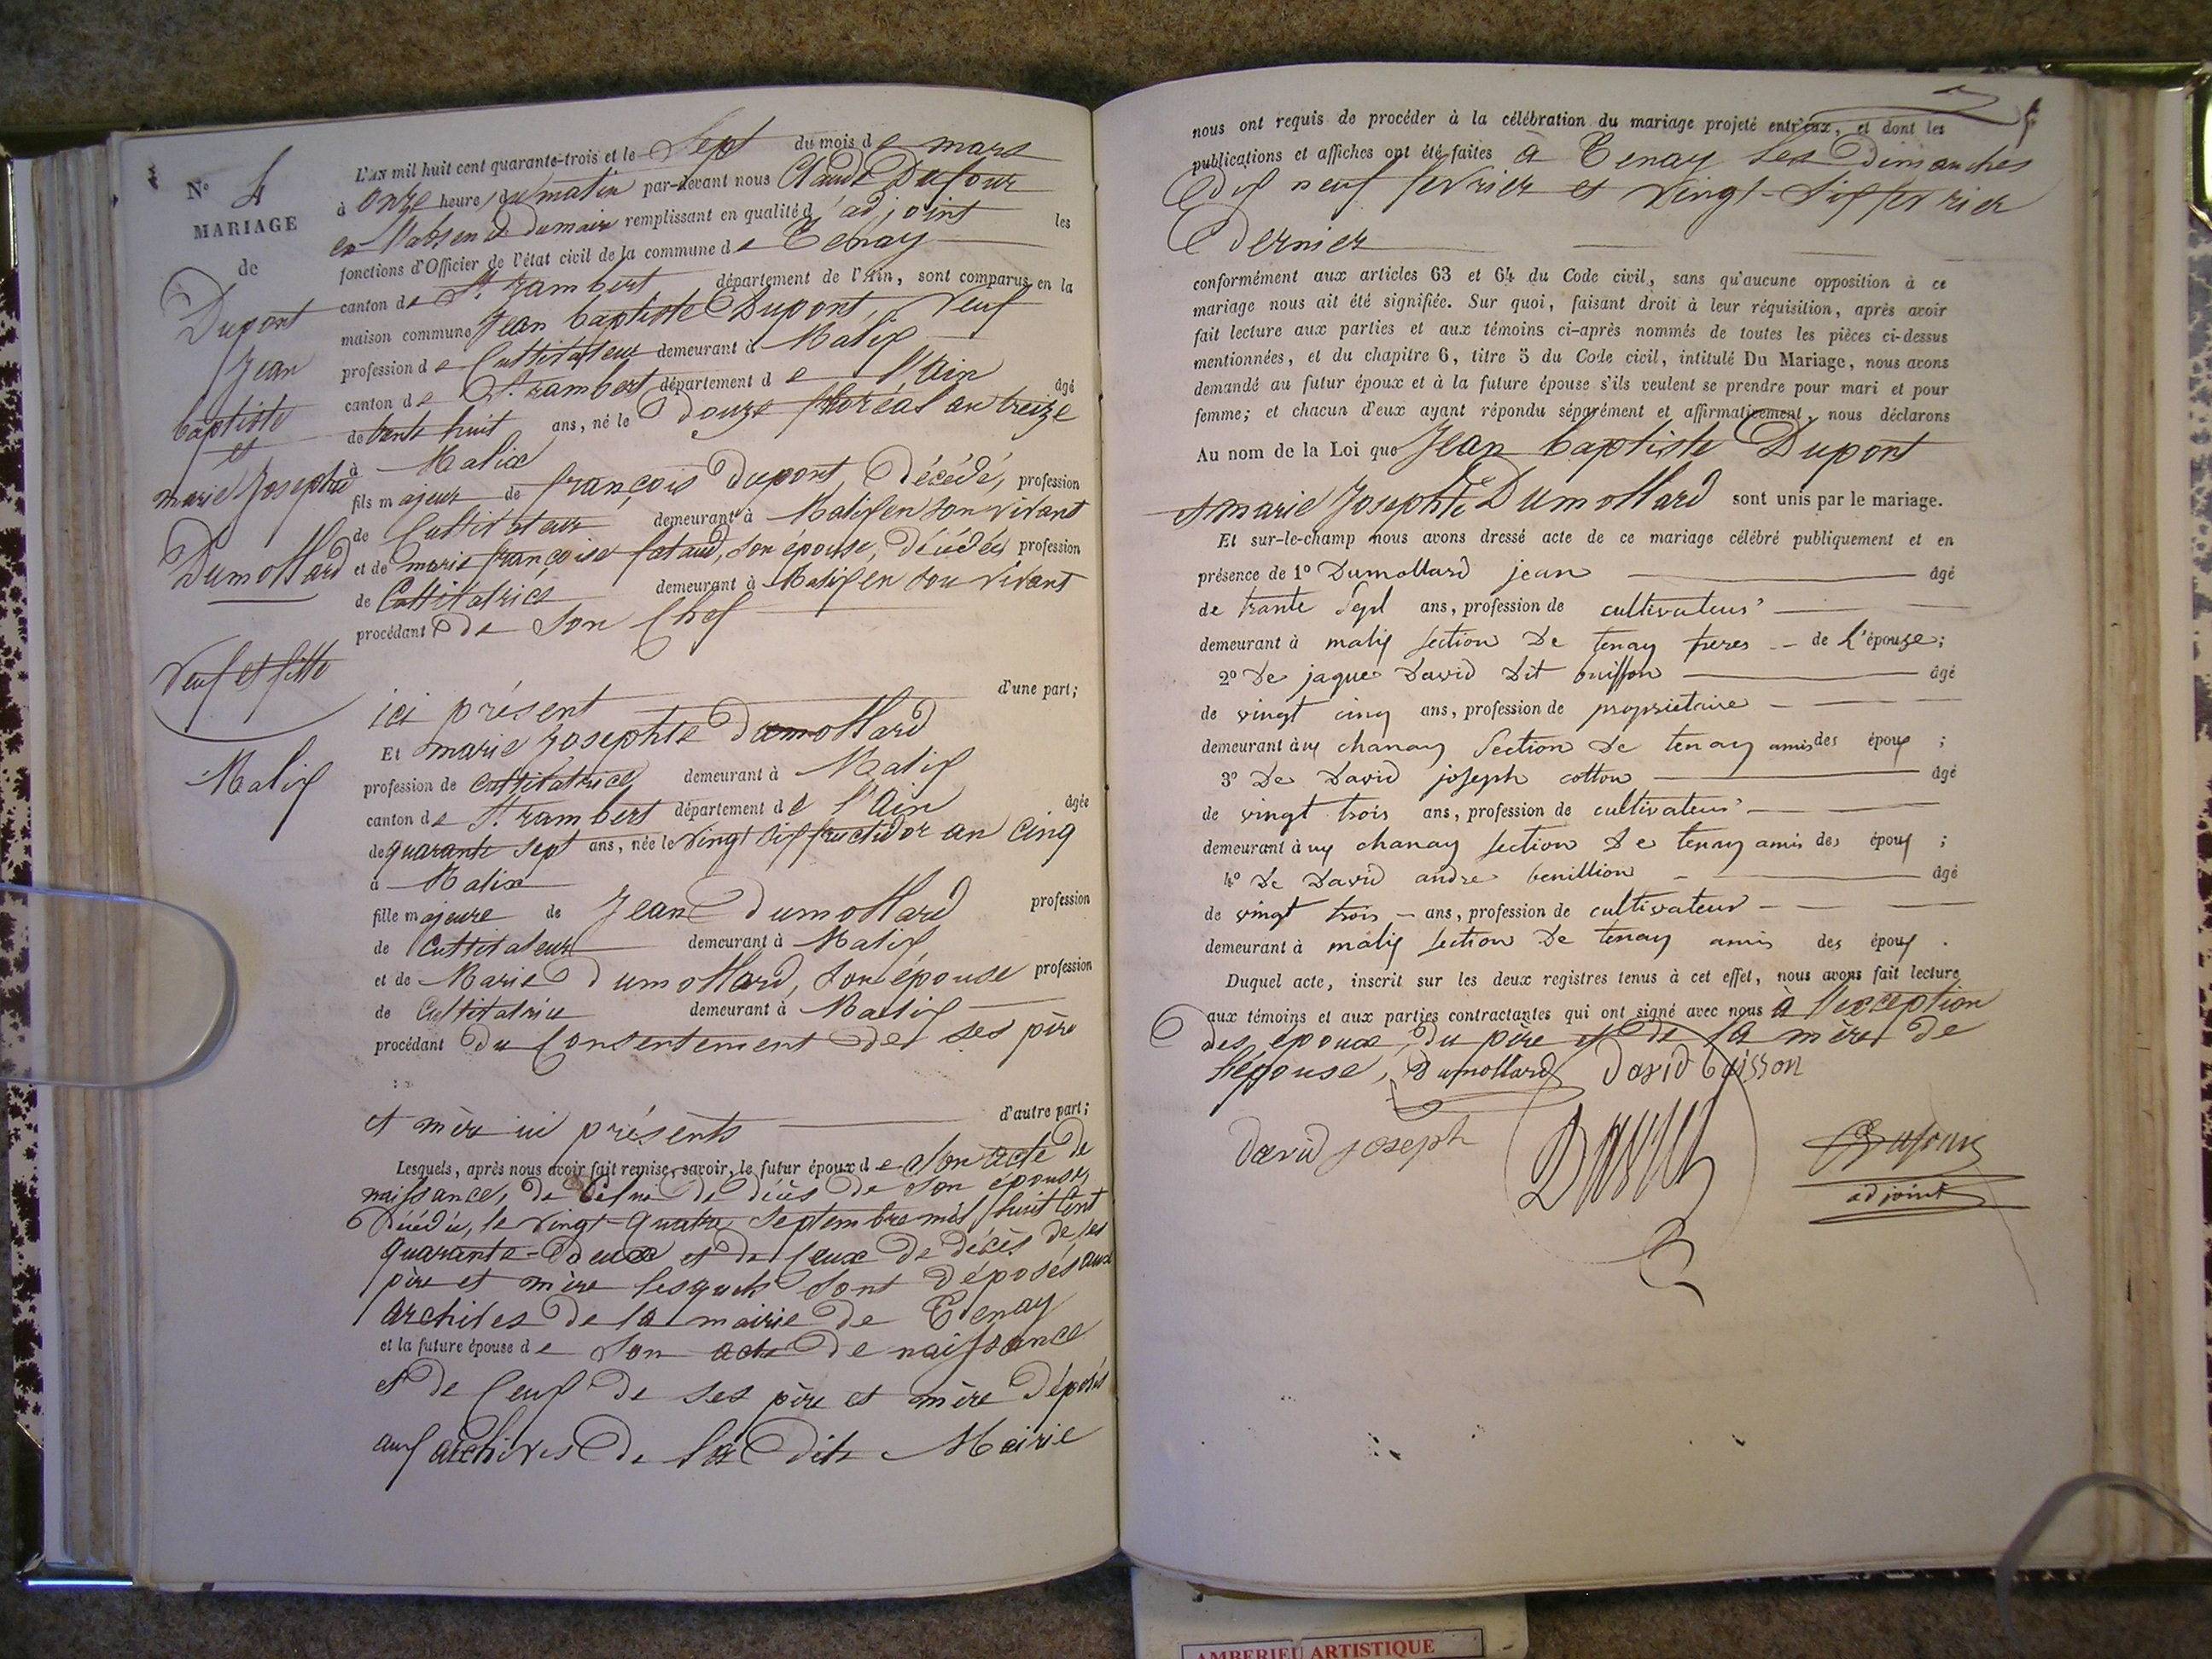 N° 4
MARIAGE
de
Dupont
Jean
baptiste
et
marie Josephte
Dumollard
Veuf et fille
Malix
L'AN mil huit cent quarante-trois et le Sept du mois de mars
à onze heures du matin par-devant nous Claude Dufour
en l'absence du maire remplissant en qualité d'adjoint les
fonctions d'Officier de l'état civil de la commune de Tenay
canton de St. rambert département de l'Ain, sont comparus en la
maison commune Jean baptiste Dupont, Veuf
profession de Cultivateur demeurant à Malix
canton de St. rambert département de l'Ain âgé
de trente huit ans, né le Douze floréal an treize
à Malix
fils majeur de françois Dupont, Décédé, profession
de Cultivateur demeurant à Malix en son vivant
et de marie françoise son épouse, Décédée profession
de Cultivatrice demeurant à Malix en son vivant
procédant de Son Chef
ici présent d'une part;
Et marie Josephte Dumollard
profession de Cultivatrice demeurant à Malix
canton de St. rambert département de l'Ain âgée
de quarante sept ans, née le Vingt Six fructidor an Cinq
à Malix
fille majeure de Jean Dumollard profession
de Cultivateur demeurant à Malix
et de Marie Dumollard, Son épouse profession
de Cultivatrice demeurant à Malix
procédant Du Consentement de ses père
et mère ici présents d'autre part;
Lesquels, après nous avoir fait remise, savoir, le futur époux de Son acte de
naissance, de Celui de décès de Son épouse,
Décédée, le Vingt-Quatre Septembre mil huit Cent
Quarante-Deux et de Ceux de décès de ses
père et mère lesquels Sont Déposés aux
archives de la mairie de Tenay
et la future épouse de Son acte de naissance
et de Ceux de ses père et mère Déposés
aux archives De la Dite Mairie
nous ont requis de procéder à la célébration du mariage projeté entr'eux, et dont les
publications et affiches ont été faites à Tenay les Dimanches
Dix neuf fevrier et Vingt-Six fevrier
Dernier
conformément aux articles 63 et 64 du Code civil, sans qu'aucune opposition à ce
mariage nous ait été signifiée. Sur quoi, faisant droit à leur réquisition, après avoir
fait lecture aux parties et aux témoins ci-après nommés de toutes les pièces ci-dessus
mentionnées, et du chapitre 6, titre 5 du Code civil, intitulé Du Mariage, nous avons
demandé au futur époux et à la future épouse s'ils veulent se prendre pour mari et pour
femme; et chacun d'eux ayant répondu séparément et affirmativement, nous déclarons
Au nom de la Loi que Jean baptiste Dupont
et marie Josephte Dumollard sont unis par le mariage.
Et sur-le-champ nous avons dressé acte de ce mariage célébré publiquement et en
présence de 1° Dumollard jean âgé
de trante Sept ans, profession de cultivateur
demeurant à malix section De tenay freres de l'épouze;
2° De jaque David Dit buisson âgé
de vingt cinq ans, profession de propriétaire
demeurant à uy chanay Section De tenay amis des époux ;
3° De David joseph cotton âgé
de vingt trois ans, profession de cultivateur
demeurant à uy chanay section De tenay amis des époux ;
4° De David andre âgé
de vingt trois ans, profession de cultivateur
demeurant à malix section De tenay amis des époux .
Duquel acte, inscrit sur les deux registres tenus à cet effet, nous avons fait lecture
aux témoins et aux parties contractantes qui ont signé avec nous à l'exception
des époux, du père et de la mère de
l'épouse, Dumollard David buisson
david joseph David Dufour
adjoint
AMBERIEU ARTISTIQUE